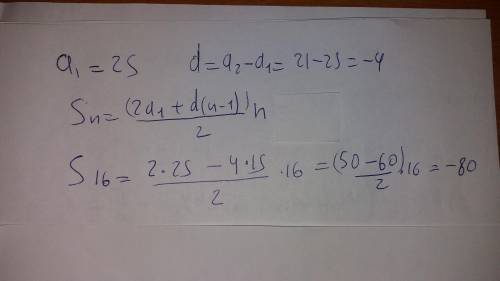 a₁ = 25 d = a₂ - a₁ = 21 - 25 = -4
Sn = (2a₁ + d(n-1))/2 n
S₁₆ = (2·25 - 4·15)/2 · 16 = (50 - 60)/2 · 16 = -80